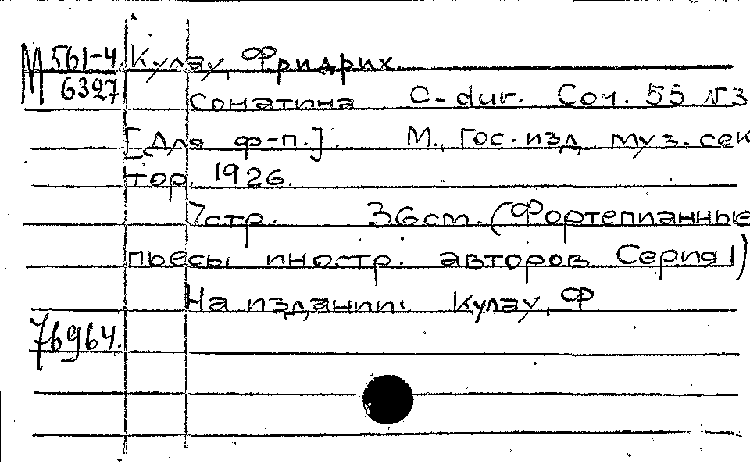 М 561-4 Кулау, Фридрих.
6327
Сонатина C-dur. Соч. 55 №3
[Для ф-п.]. М., Гос. изд. муз. сек
тор. 1926.
7стр. 36см. (Фортепианные
пьесы иностр. авторов Серия 1)
На издании: Кулау, Ф
76964.